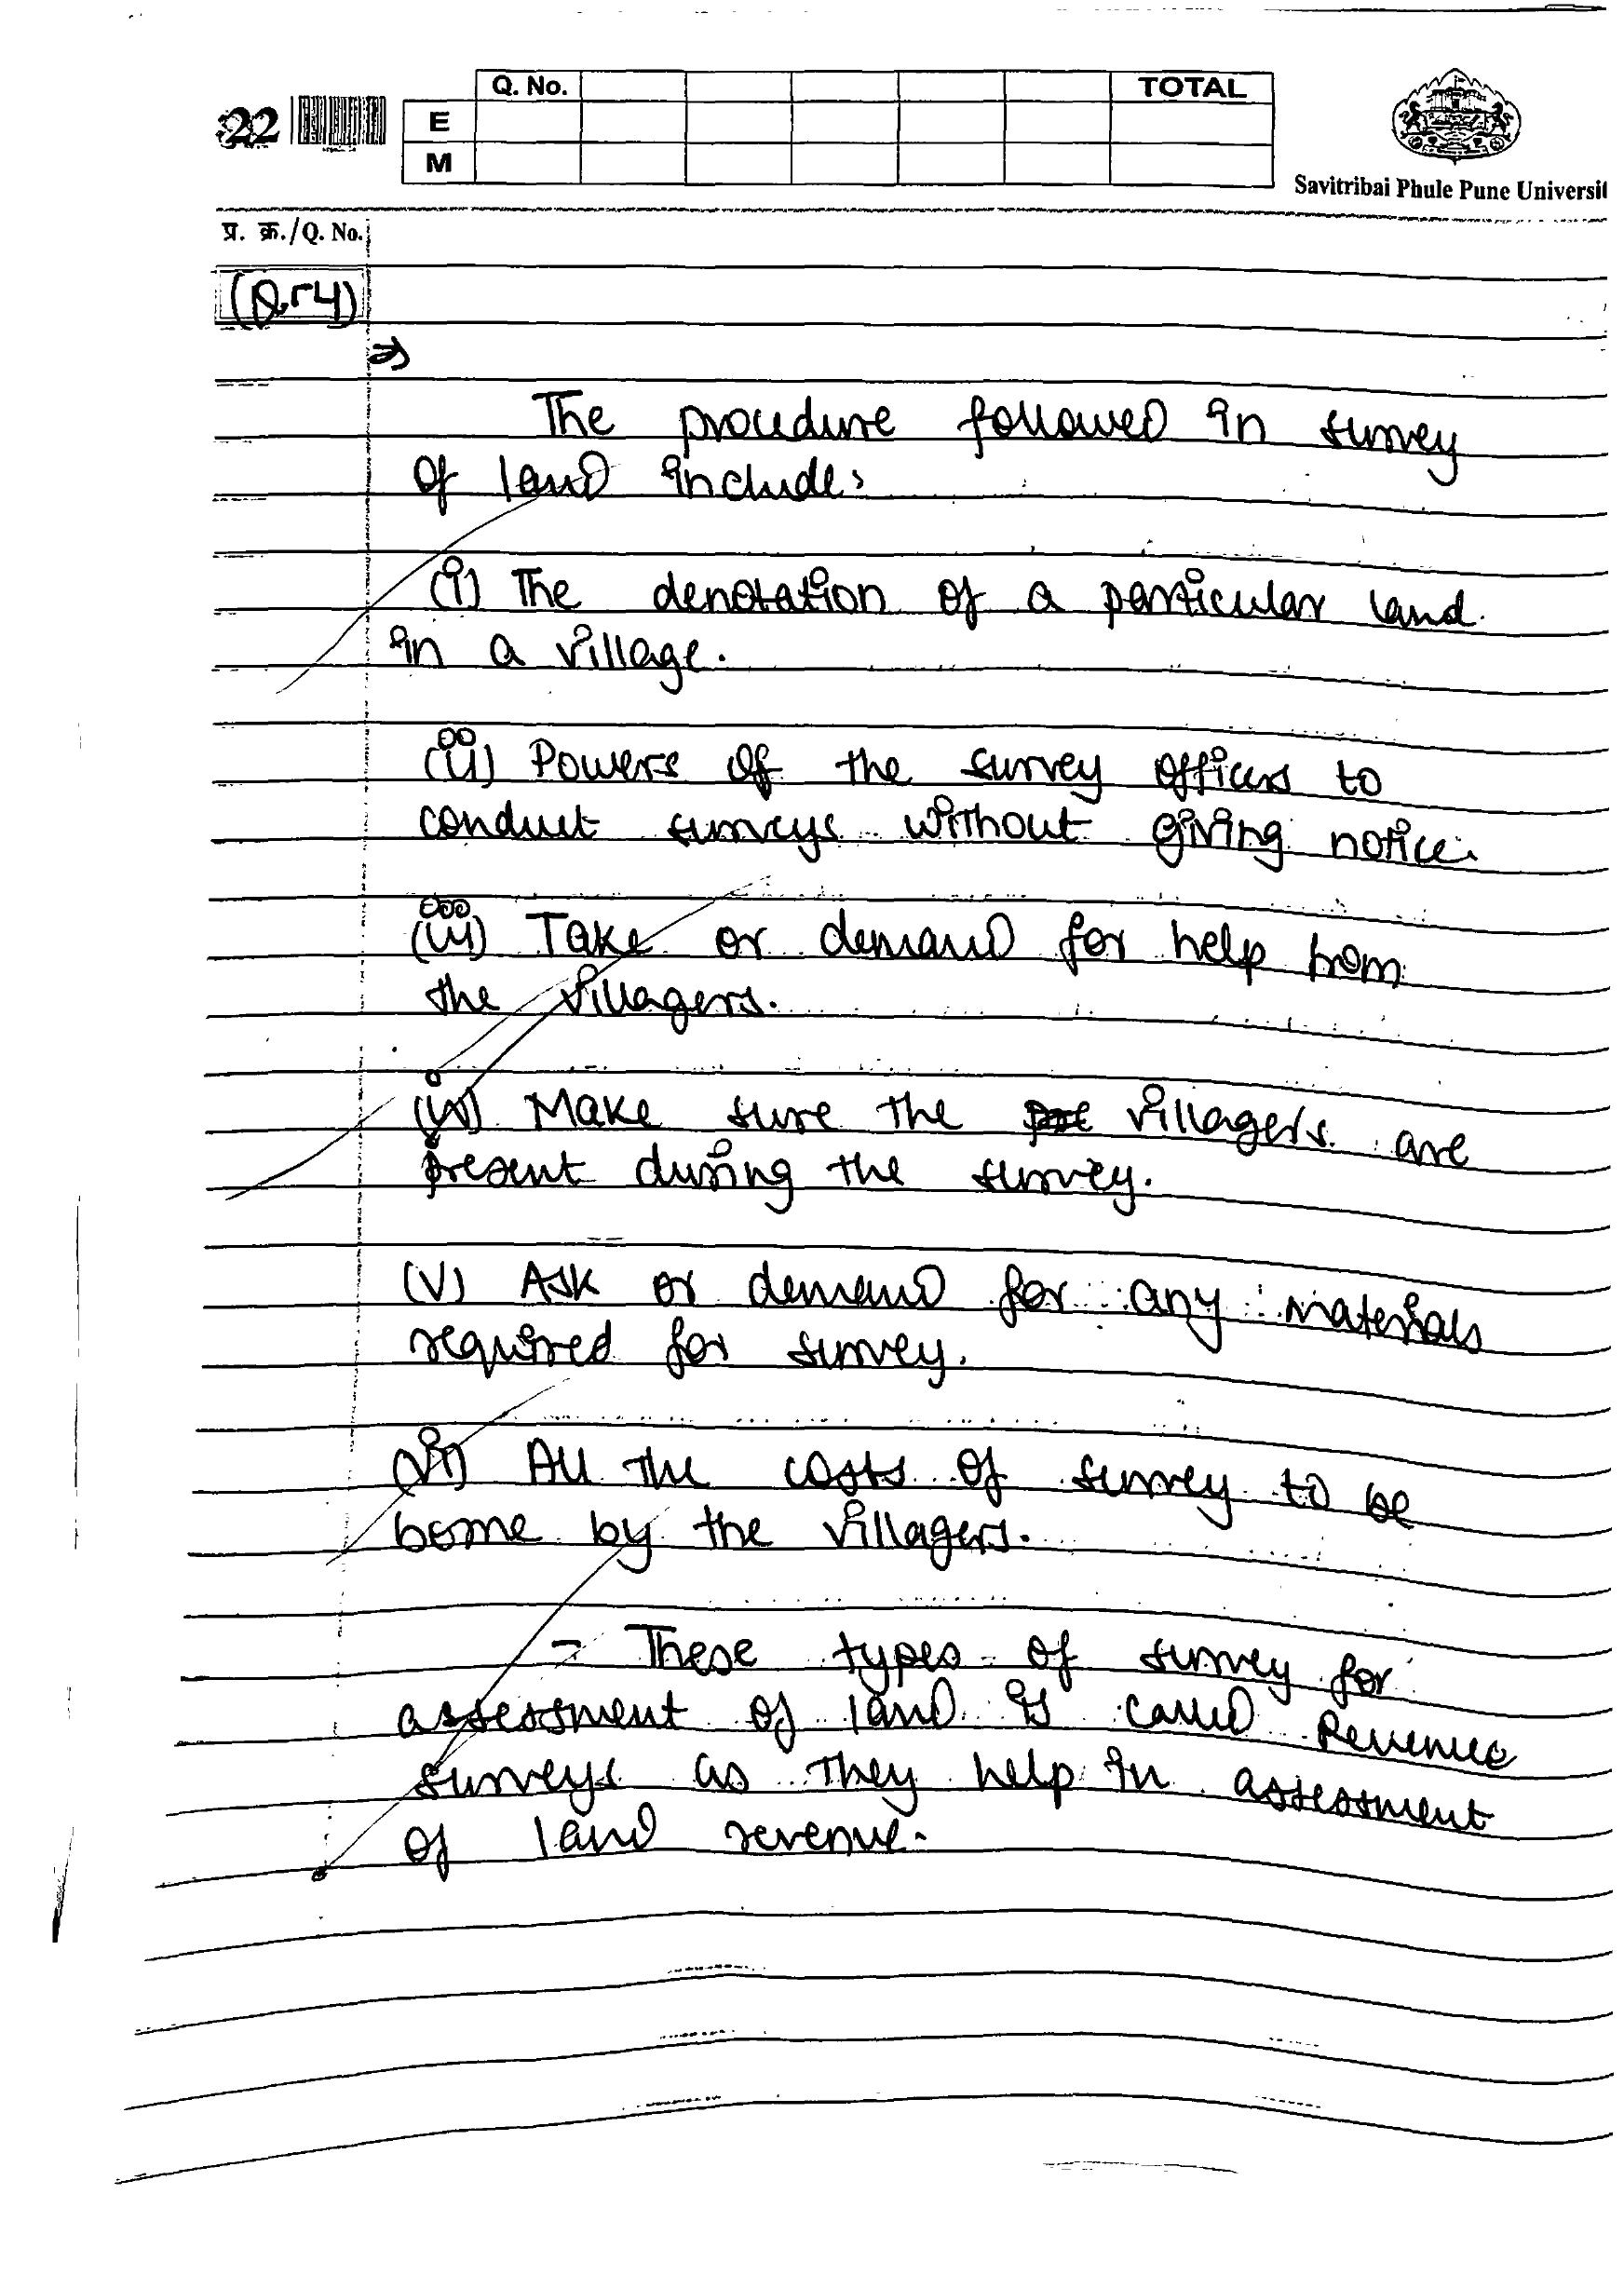 Q. No. TOTAL
22
E
M
Savitribai Phule Pune Universit
प्र. क्र./Q. No.
(Q.r4)
⇒
The procedure followed in survey
of land include:
(i) The denotation of a particular land
in a village.
(ii) Powers of the survey officers to
conduct surveys without giving notice.
(iii) Take or demand for help from
the villagers.
(iv) Make sure the villagers are
present during the survey.
(V) Ask or demand for any materials
required for survey.
(vi) All the costs of survey to be
borne by the villagers.
- These types of survey for
assessment of land is called Revenue
surveys as they help in assessment
of land revenue.